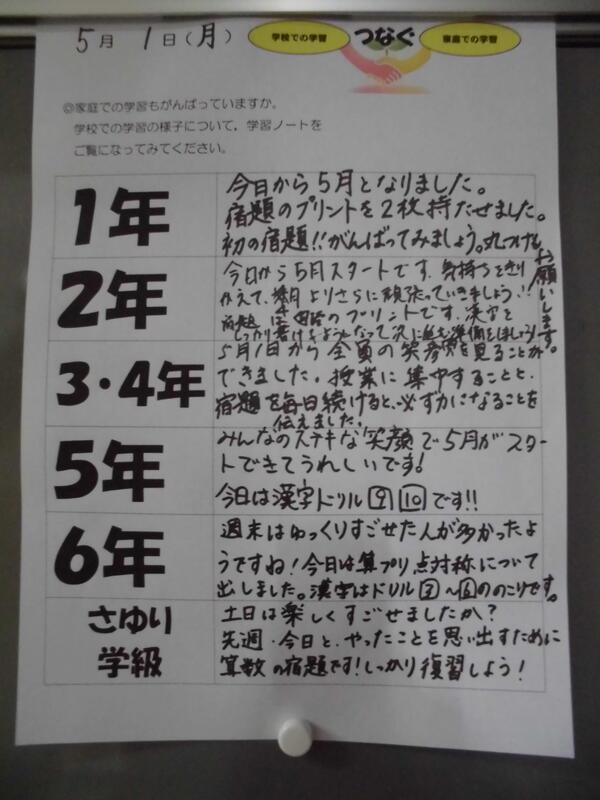 5月 1日(月)
学校での学習 つなぐ 家庭での学習
◎家庭での学習もがんばっていますか。
学校での学習の様子について，学習ノートを
ご覧になってみてください。
1年
今日から5月となりました。
宿題のプリントを2枚持たせました。
初の宿題!!がんばってみましょう。丸つけも
お願いします。
2年
今日から5月スタートです。気持ちをきり
かえて、先月よりさらに頑張っていきましょう!!
宿題は のプリントです。漢字を
しっかり書けるようになって次に進む準備をしましょう!
3・4年
5月1日から全員の笑顔を見ることが
できました。授業に集中することと、
宿題を毎日続けると、必ず力になることを
伝えました。
5年
みんなのステキな笑顔で5月がスター
トできてうれしいです!
今日は漢字ドリル⑨⑩です!!
6年
週末はゆっくりすごせた人が多かったよ
うですね!今日は算プリ点対称について
出しました。漢字はドリル ～ ののこりです。
さゆり
学級
土日は楽しくすごせましたか?
先週・今日と、やったことを思い出すために
算数の宿題です!しっかり復習しよう!